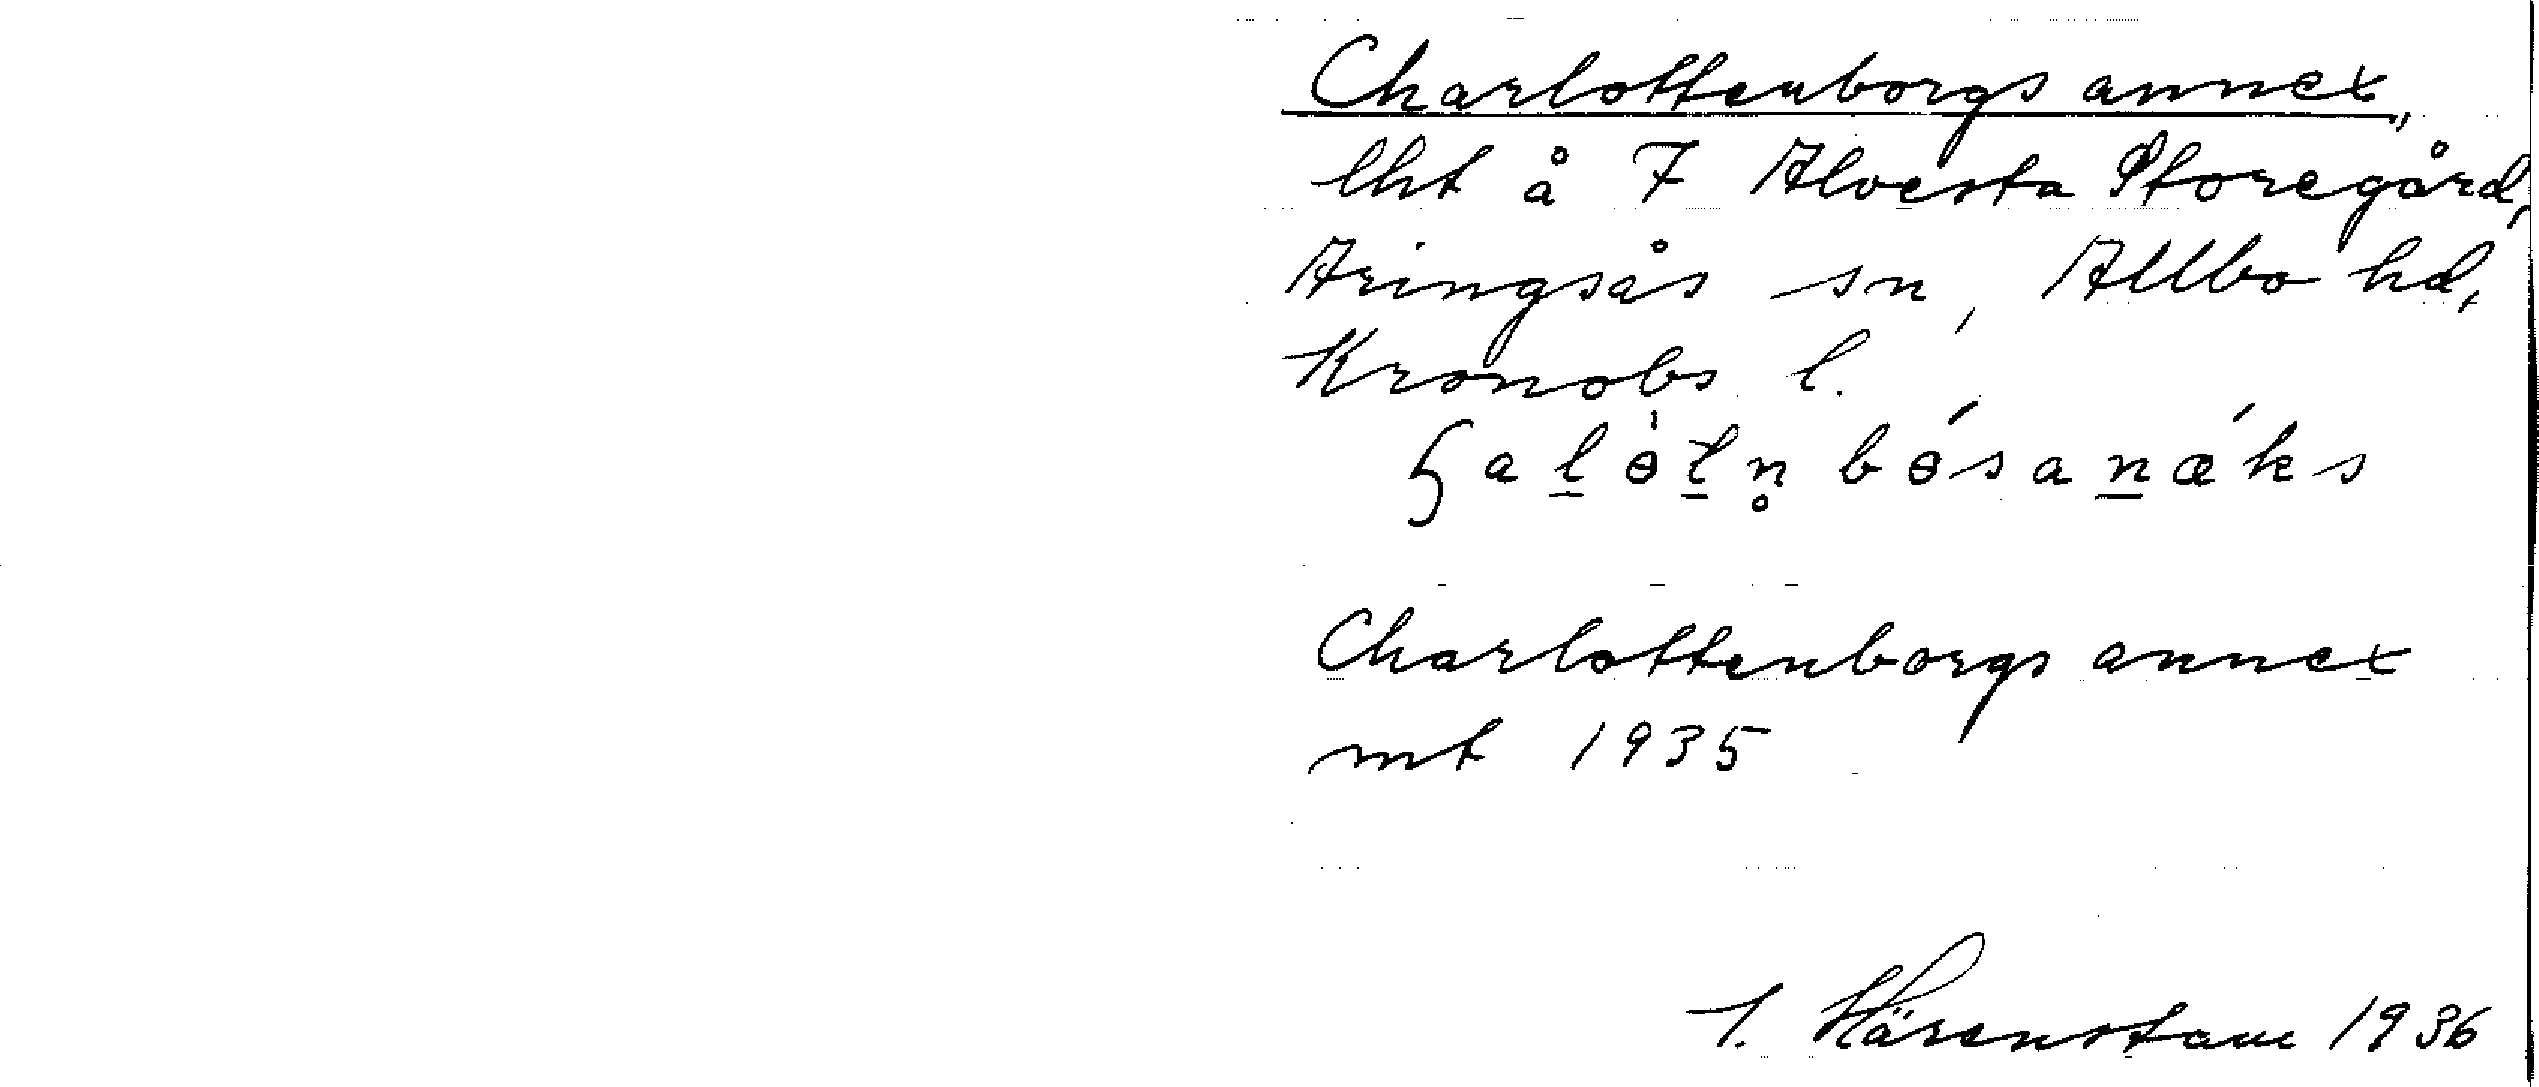 Charlottenborgs annex,
lht å 7 Alvesta Storegård,
Aringsås sn, Allbo hd,
Kronobs l.
Charlottenborgs annex
mt 1935
Härenstam 1936